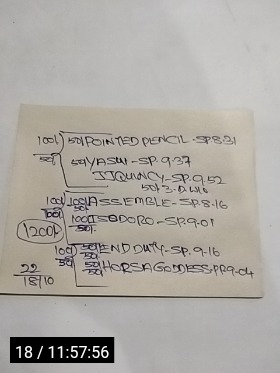 100/50/ 50/ POINTED PENCIL - SP.8.31
50/ YASH - SP.9.37
JJ QUINCY - SP.9.52
100/100/ 100/50/ ASSEMBLE - SP.8.16
100/50/ ISODORO - SP.9.01
1200/
100/50/ 50/50/ END DUTY - SP.9.16
50/50/ HORSAGODDESS - PR9.04
22
18/10
18 / 11:57:56